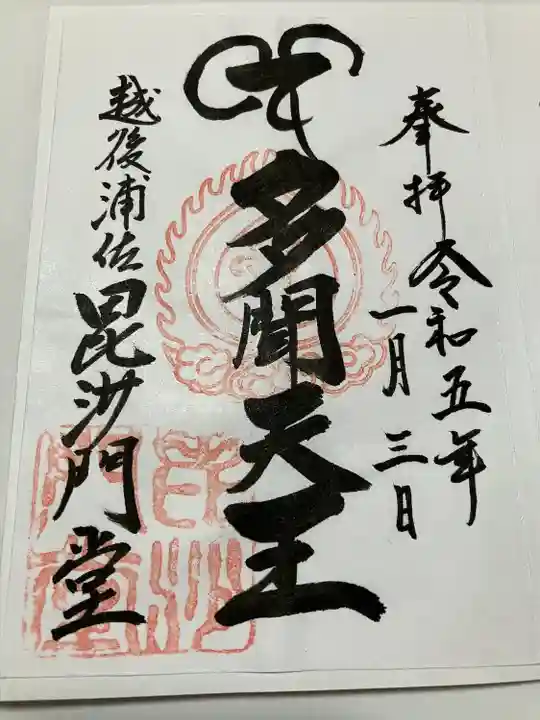 奉拝 令和五年
一月三日
多聞天王
越後浦佐毘沙門堂